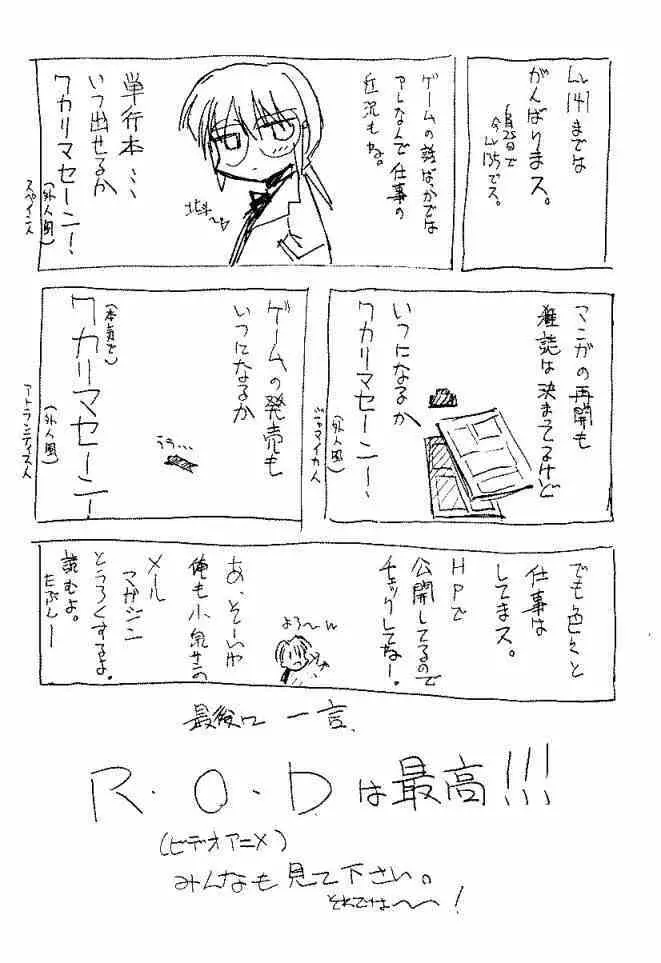 Lv 141までは
がんばりまス。
6月25日で
今Lv135でス。
ゲームの話ばっかでは
アレなんで仕事の
近況もね。
単行本…
いつ出せるか
ワカリマセーン!
(外人風)
スペイン人
マンガの再開も
雑誌は決まってるけど
いつになるか
ワカリマセーン!
(外人風)
ジャマイカ人
ゲームの発売も
いつになるか
ううっ…
(本気で)
ワカリマセーン!
(外人風)
アトランティス人
でも色々と
仕事は
してまス。
HPで
公開してるので
チェックしてねー!
よろ〜
あ、そーいや
俺も小泉サンの
メル
マガジン
とうろくするよ。
読むよ。
たぶんー
最後に一言、
R・O・Dは最高!!!
(ビデオアニメ)
みんなも見て下さい。
それでは〜〜!